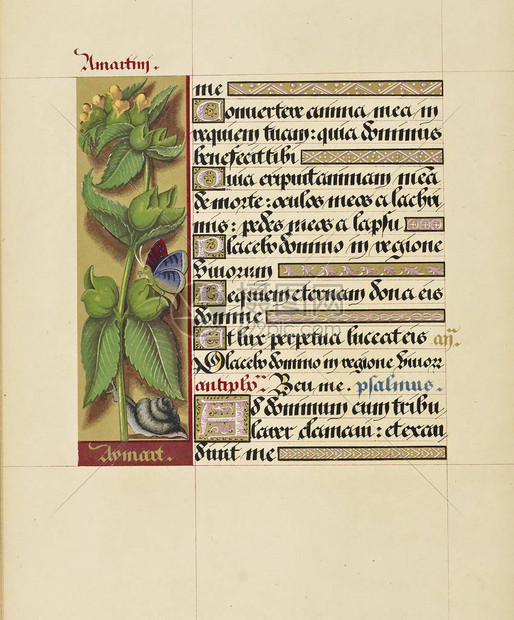 Amartinj.
me
Convertere anima mea in
requiem tuam: quia dominus
benefecit tibi
Quia eripuit animam meā
de morte: oculos meos a lachri
mis: pedes meos a lapsu
Placebo domino in regione
vivorum
Requiem eternam dona eis
domine
Et lux perpetua luceat eis añ.
Placebo domino in regione vivorꝝ
antiphō. Heu me. psalmus.
AD dominum cum tribu
larer clamavi: et exau
divit me
aymart.